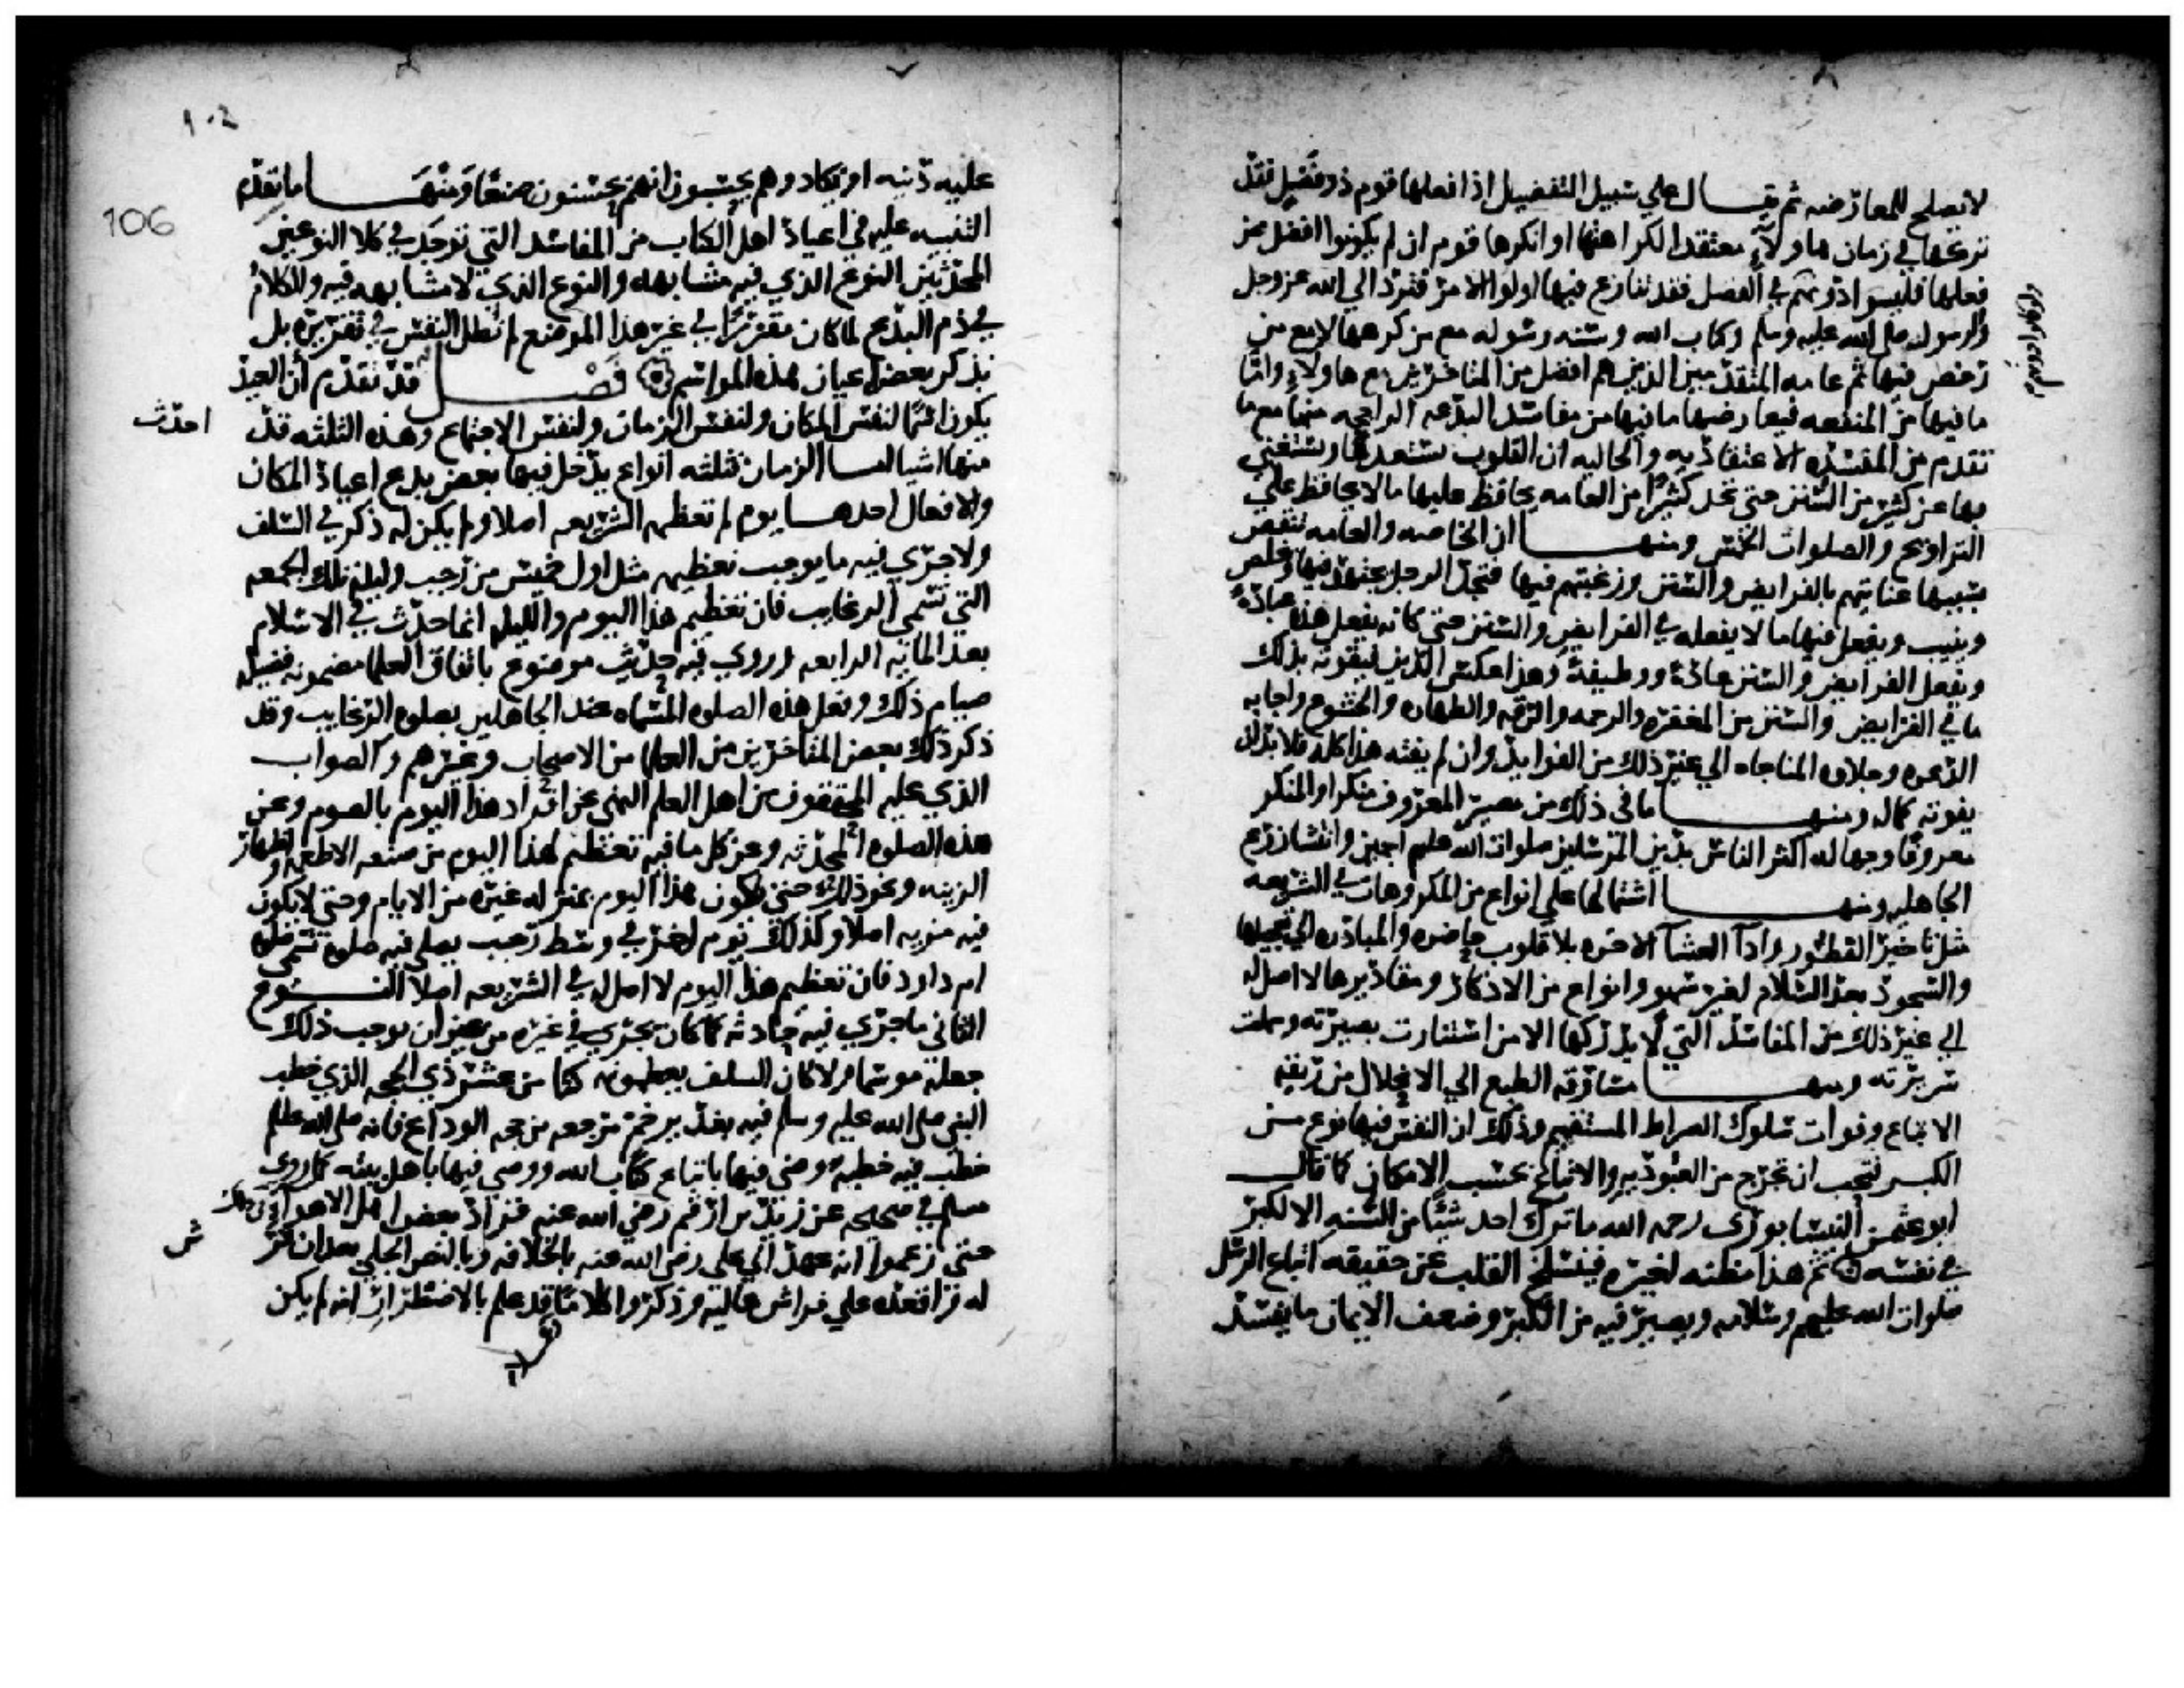 لا تصلح للمعارضه ثم يقال علي سبيل التفضيل اذا فعلها قوم ذوو فضل فقد
تركها في زمان هاولاء معتقدا لكراهتها او انكرها قوم ان لم يكونوا افضل ممن
فعلها فليسوا دونهم في الفضل فقد تنازع فيها اولوا الامر فترد الي الله عز وجل
والرسول صلي الله عليه وسلم وكتاب الله وسنه رسوله مع من كرهها لا مع من
رخص فيها ثم عامه المتقدمين الذين هم افضل من المتاخرين مع هاولاء واما
ما فيها من المنفعه فيعارضها ما فيها من مفاسد البدعه الراجحه منها مع ما
تقدم من المفسده الاعتقاديه والحاليه ان القلوب تستعذبها وتستغني
بها عن كثير من السنن حتي تجد كثيرا من العامه يحافظ عليها مالا يحافظ علي
التراويح والصلوات الخمس ومنها ان الخاصه والعامه تنقص
بسببها عنايتهم بالفرايض والسنن ورغبتهم فيها فتجد الرجل يجتهد فيها ويخلص
وينيب ويفعل فيها ما لا يفعله في الفرايض والسنن حتي كانه يفعل هذه عبادة
ويفعل الفرايض والسنن عادة ووظيفة وهذا عكس الدين ليفوته بذلك
ما في الفرايض والسنن من المغفره والرحمه والرقه والطهاره والخشوع واجابه
الدعوه وحلاوه المناجاه الي غير ذلك من الفوايد وان لم يفته هذا كله فلا بد ان
يفوته كماله ومنها ما في ذلك من مصير المعروف منكرا والمنكر
معروفا وجهاله اكثر الناس بدين المرسلين صلوات الله عليهم اجمعين وانتشا زرع
الجاهليه ومنها اشتمالها علي انواع من المكروهات في الشريعه
مثل تاخير الفطور واداء العشاء الاخره بلا قلوب حاضره والمبادره الي تعجيلها
والسجود بعد السلام لغير سهو وانواع من الاذكار ومقاديرها لا اصل له
الي غير ذلك من المفاسد التي لا يدركها الا من استنارت بصيرته وسلمت
سريرته ومنها مسارقه الطبع الي الانحلال من ربقه
الاتباع وفوات سلوك الصراط المستقيم وذلك ان النفس فيها نوع من
الكبر فتحب ان تخرج من العبوديه والاتباع بحسب الامكان كما قال
ابو عثمن النيسابوري رحمه الله ما ترك احد شيئا من السنه الا لكبر
في نفسه ثم هذا مظنه لغيره فينسلخ القلب عن حقيقه اتباع الرسل
صلوات الله عليهم وسلامه ويصير فيه من الكبر وضعف الايمان ما يفسد
106
عليه دينه او يكاد وهم يحسبون انهم يحسنون صنعا ومنها ما تقدم
التنبيه عليه في اعياد اهل الكتاب من المفاسد التي توجد في كلا النوعين
المحدثين النوع الذي فيه مشابهه والنوع الذي لا مشابهه فيه والكلام
في ذم البدع لما كان مقررا في غير هذا الموضع لم نطل النفس في تقريره بل
نذكر بعض اعيان هذه المواسم فصل قد تقدم ان العيد
يكون اسما لنفس المكان ولنفس الزمان ولنفس الاجتماع وهذه الثلثه قد احدث
منها اشيا اما الزمان فثلثه انواع يدخل فيها بعض بدع اعياد المكان
والافعال احدها يوم لم تعظمه الشريعه اصلا ولم يكن له ذكر في السلف
ولا جري فيه ما يوجب تعظيمه مثل اول خميس من رجب وليله تلك الجمعه
التي تسمي الرغايب فان تعظيم هذا اليوم والليله انما حدث في الاسلام
بعد المايه الرابعه وروي فيه حديث موضوع باتفاق العلما مضمونه فضيله
صيام ذلك وفعل هذه الصلوه المسماه عند الجاهلين بصلوه الرغايب وقد
ذكر ذلك بعض المتاخرين من العلما من الاصحاب وغيرهم والصواب
الذي عليه المحققون من اهل العلم النهي عن افراد هذا اليوم بالصوم وعن
هذه الصلوه المحدثه وعن كل ما فيه تعظيم لهذا اليوم من صنعه الاطعمه واظهار
الزينه ونحو ذلك حتي يكون هذا اليوم بمنزله غيره من الايام وحتي لا يكون
فيه مزيه اصلا وكذلك يوم اخر في وسط رجب يصلي فيه صلوه تسمي صلوه
ام داود فان تعظيم هذا اليوم لا اصل له في الشريعه اصلا النوع
الثاني ما جري فيه حادثه كما كان يجري في غيره من غير ان يوجب ذلك
جعله موسما ولا كان السلف يعظمونه كثامن عشر ذي الحجه الذي خطب
النبي صلي الله عليه وسلم فيه بغدير خم مرجعه من حجه الوداع فانه صلي الله عليه
خطب فيه خطبه وصي فيها باتباع كتاب الله ووصي فيها باهل بيته كما روي
مسلم في صحيحه عن زيد بن ارقم رضي الله عنه فزاد بعض اهل الاهوا في ذلك
حتي زعموا انه عهد الي علي رضي الله عنه بالخلافه وبالنص الجلي بعد ان فرش
له واقعده علي فراش عاليه وذكروا كلاما قد علم بالاضطرار انه لم يكن